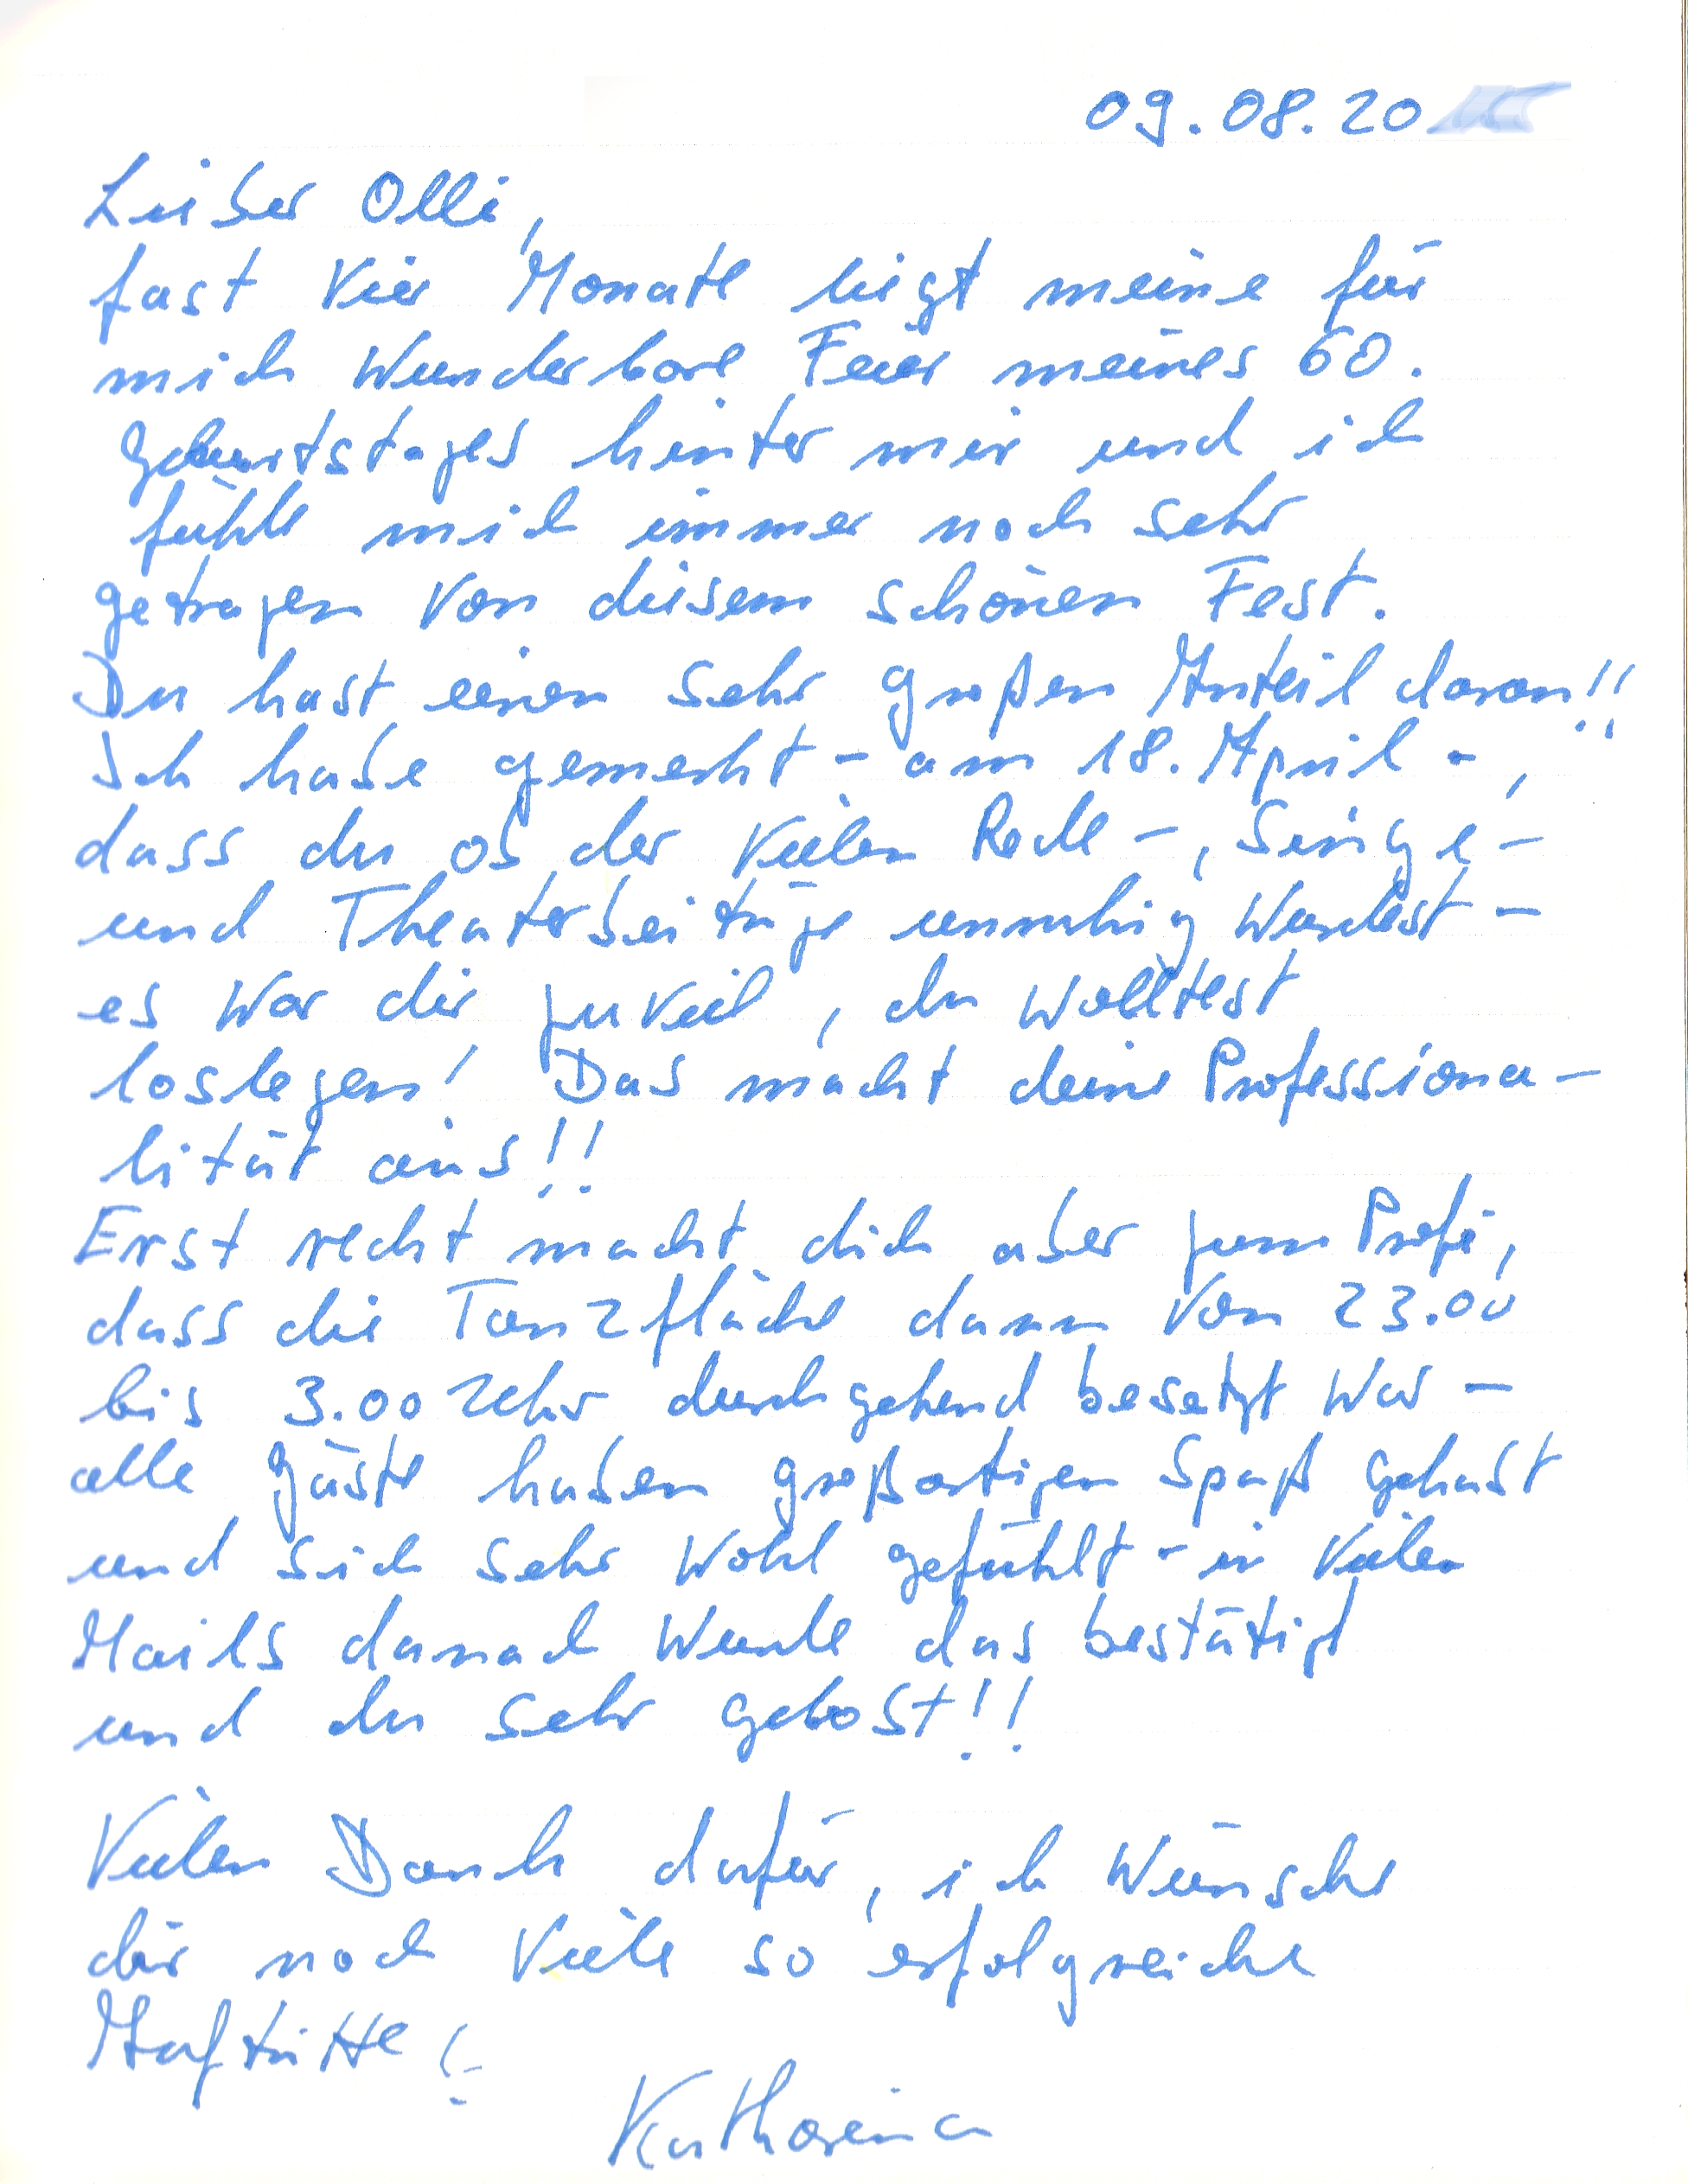 09.08.20
Lieber Olli,
fast vier Monate liegt meine für
mich wunderbare Feier meines 60.
Geburtstages hinter mir und ich
fühle mich immer noch sehr
getragen von diesem schönen Fest.
Du hast einen sehr großen Anteil daran!!
Ich habe gemerkt - am 18. April -,
dass du ob der vielen Rede-, Singe-
und Theaterbeiträge unruhig wurdest -
es war dir zuviel, du wolltest
loslegen! Das macht deine Professiona-
lität aus!!
Erst recht macht dich aber zum Profi,
dass die Tanzfläche dann von 23.00
bis 3.00 Uhr durchgehend besetzt war -
alle Gäste haben großartigen Spaß gehabt
und sich sehr wohl gefühlt - in vielen
Mails danach wurde das bestätigt
und du sehr gelobt!!
Vielen Dank dafür, ich wünsche
dir noch viele so erfolgreiche
Auftritte!
Katharina